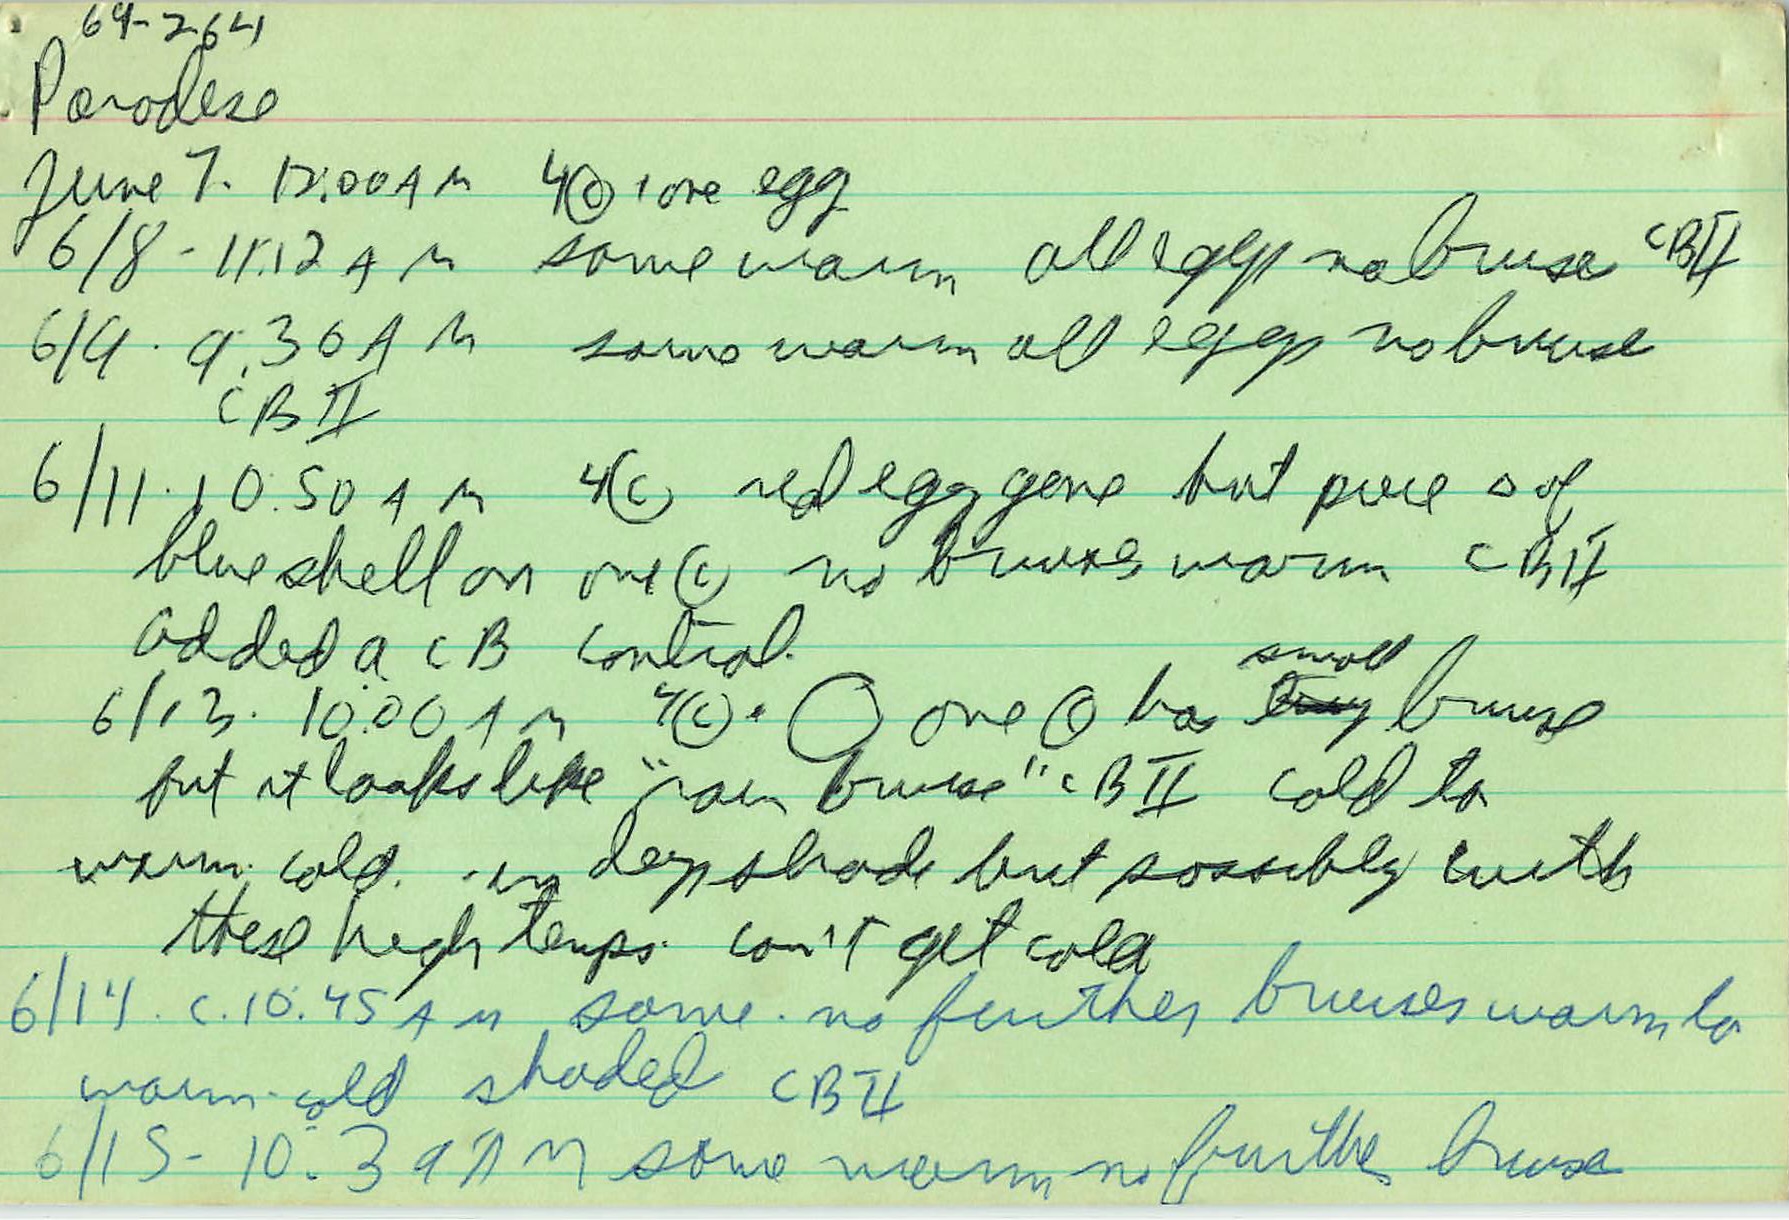 64-264
Paradise
June 7. 12:00 AM 4(c) 1 ore egg
6/8 - 11:12 AM same warm all eggs no bruise CBII
6/9. 9.30 AM same warm all eggs no bruise
CBII
6/11. 10:50 AM 4(c) red egg gone but piece s of
blue shell on one (c) no bruises warm CBII
added a CB control.
6/13. 10:00 AM 4(c). one (c) has small bruise
but it looks like "rain bruise" CBII cold to
warm cold. in deep shade but possibly with
these high temps. can't get cold
6/14. c. 10.45 AM same. no further bruises warm to
warm-cold shaded CBII
6/15- 10:39 AM same warm no further bruise